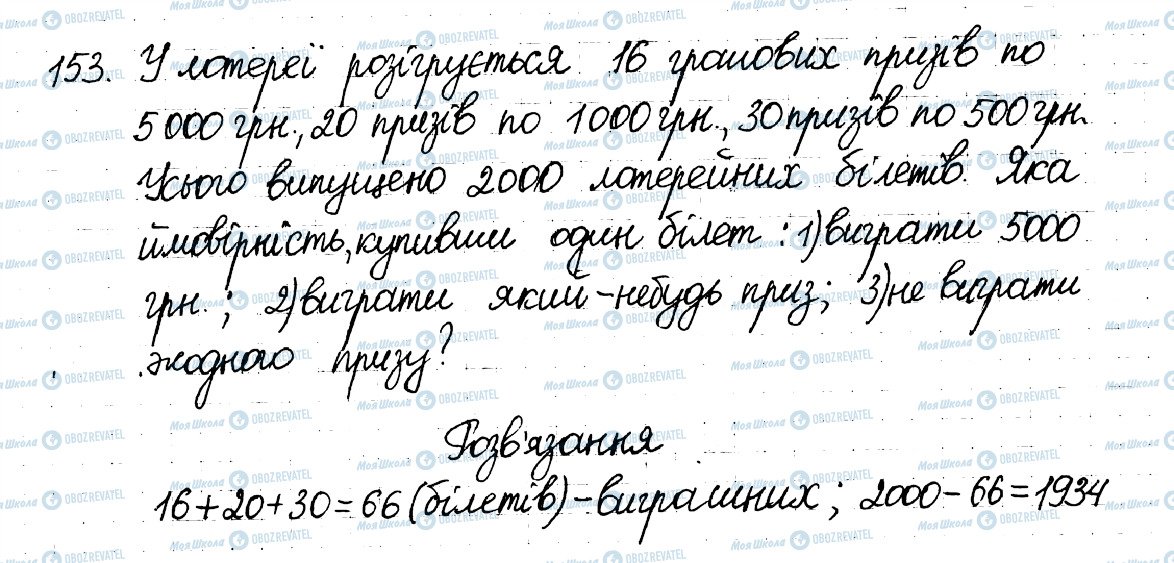 153. У лотереї розігрується 16 грошових призів по
5000 грн., 20 призів по 1000 грн., 30 призів по 500 грн.
Усього випущено 2000 лотерейних білетів. Яка
ймовірність, купивши один білет: 1) виграти 5000
грн.; 2) виграти який-небудь приз; 3) не виграти
жодного призу?
Розв'язання
16+20+30=66 (білетів) - виграшних; 2000-66=1934